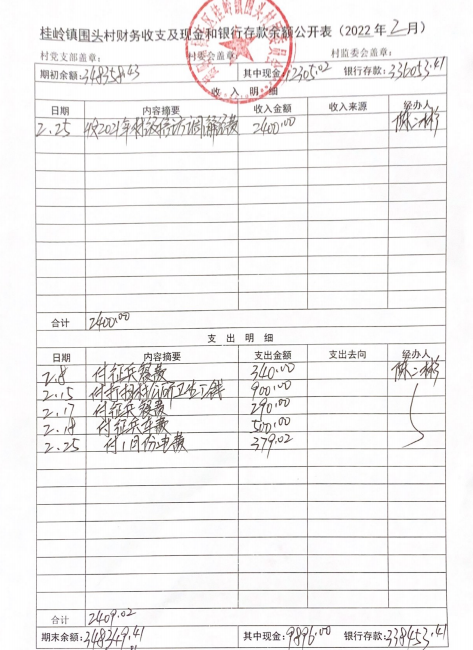 桂岭镇围头村财务收支及现金和银行存款余额公开表（2022年2月）
村党支部盖章： 村委会盖章： 村监委会盖章：
期初余额：348358.43 其中现金：12305.02 银行存款：336053.41
收入明细
日期 内容摘要 收入金额 收入来源 经办人
2.25 收2021年村级 2400.00
合计 2400.00
支出明细
日期 内容摘要 支出金额 支出去向 经办人
2.8 付征兵餐费 340.00
2.15 付打扫村公所卫生工钱 900.00
2.17 付征兵餐费 290.00
2.19 付征兵车费 500.00
2.25 付1月份电费 379.02
合计 2409.02
期末余额：348349.41 其中现金：9896.00 银行存款：338453.41